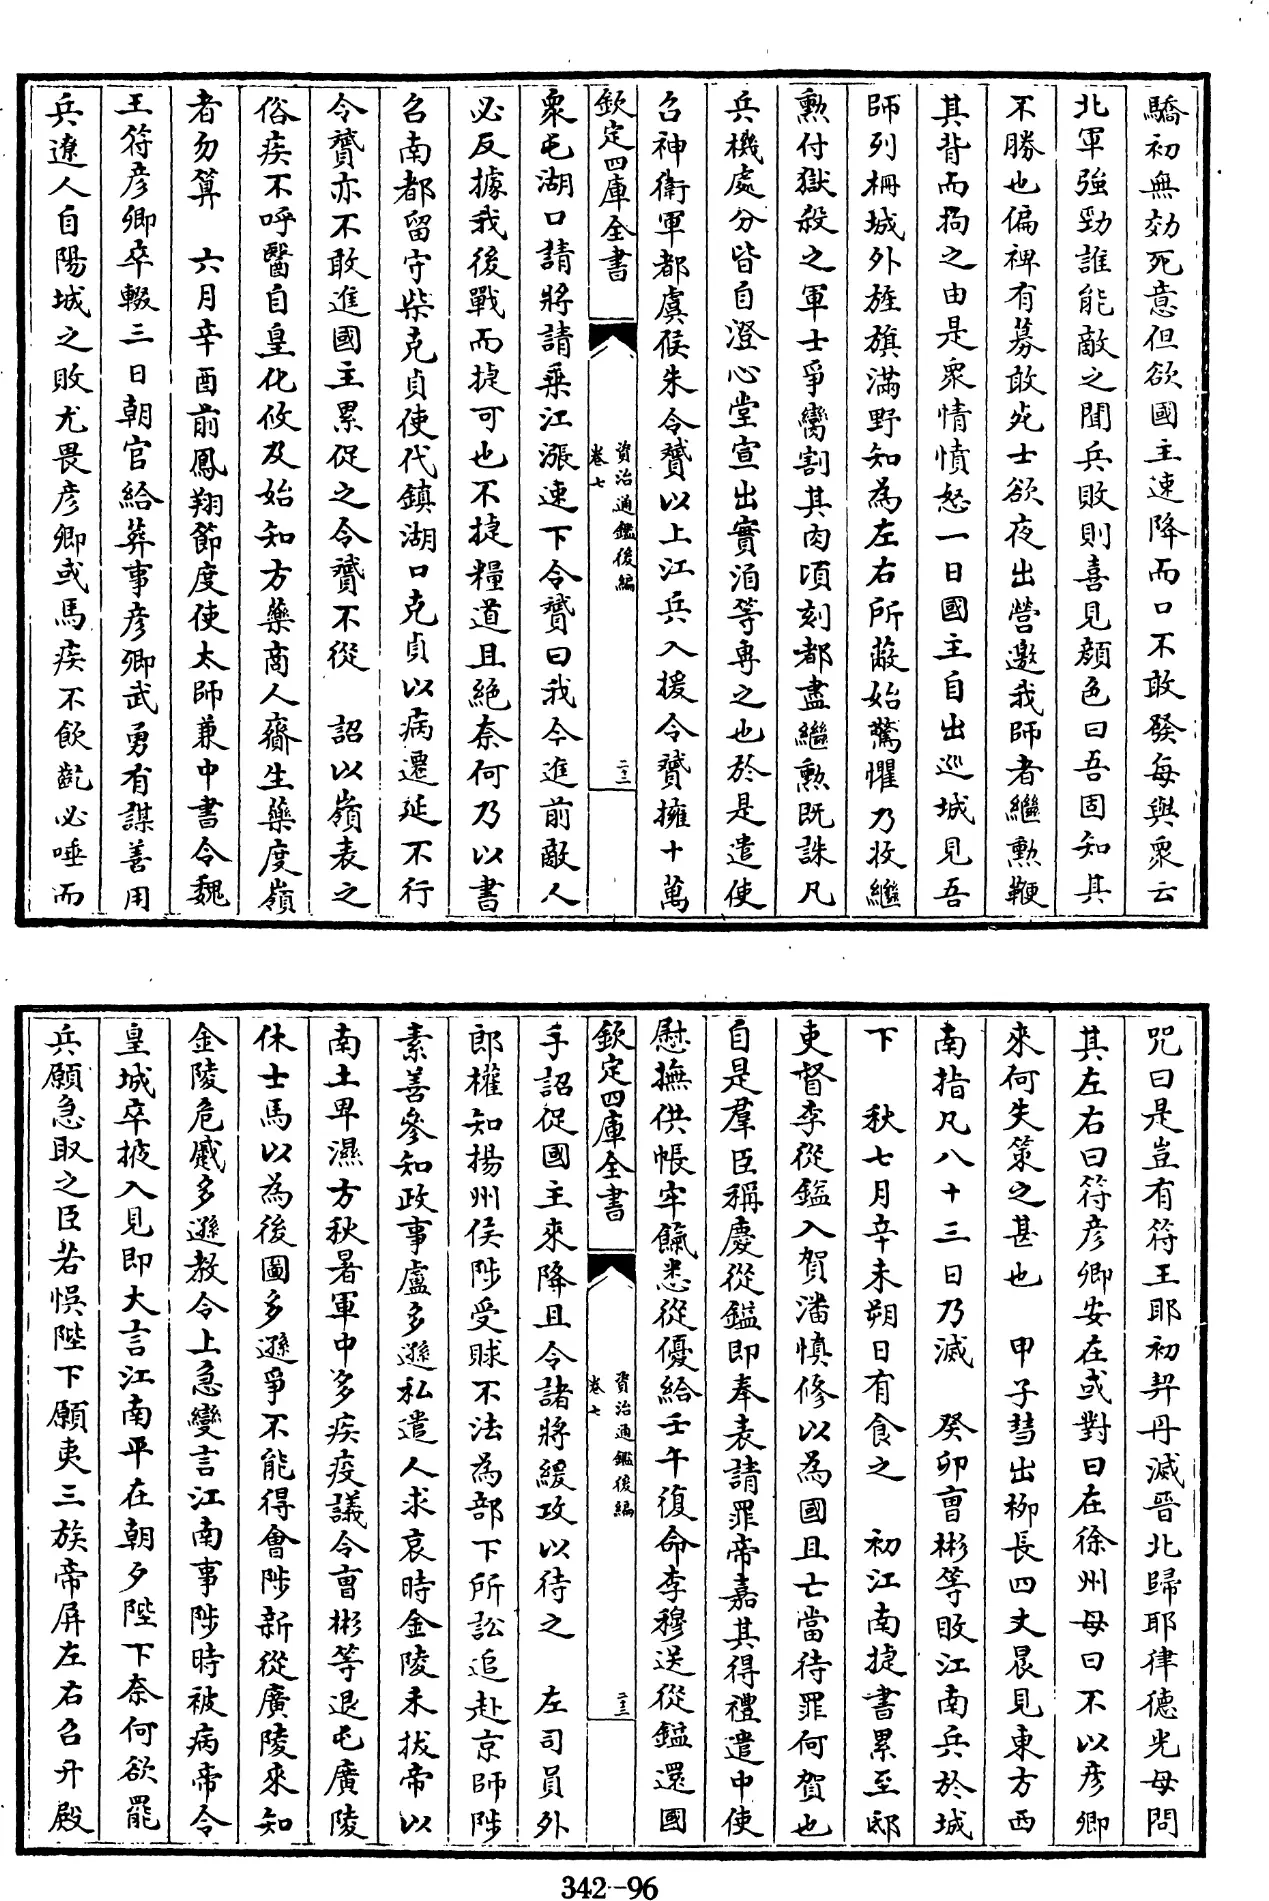 驕初無効死意但欲國主速降而口不敢發每與衆云
北軍強勁誰能敵之聞兵敗則喜見顔色曰吾固知其
不勝也偏裨有募敢死士欲夜出營邀我師者繼勲鞭
其背而拘之由是衆情憤怒一日國主自出巡城見吾
師列栅城外旌旗滿野知為左右所蔽始驚懼乃收繼
勲付獄殺之軍士爭臠割其肉頃刻都盡繼勲既誅凡
兵機處分皆自澄心堂宣出實洎等專之也於是遣使
召神衛軍都虞候朱令贇以上江兵入援令贇擁十萬
欽定四庫全書
資治通鑑後編
卷七
二十二
衆屯湖口請將請乗江漲速下令贇曰我今進前敵人
必反據我後戰而捷可也不捷糧道且絶奈何乃以書
召南都留守柴克貞使代鎮湖口克貞以病遷延不行
令贇亦不敢進國主累促之令贇不從　詔以嶺表之
俗疾不呼醫自皇化攸及始知方藥商人齎生藥度嶺
者勿算　六月辛酉前鳳翔節度使太師兼中書令魏
王符彦卿卒輟三日朝官給葬事彦卿武勇有謀善用
兵遼人自陽城之敗尤畏彦卿或馬疾不飲齕必唾而
咒曰是豈有符王耶初契丹滅晉北歸耶律德光母問
其左右曰符彦卿安在或對曰在徐州母曰不以彦卿
來何失策之甚也　甲子彗出柳長四丈晨見東方西
南指凡八十三日乃滅　癸卯曹彬等敗江南兵於城
下　秋七月辛未朔日有食之　初江南捷書累至邸
吏督李從鎰入賀潘慎修以為國且亡當待罪何賀也
自是羣臣稱慶從鎰即奉表請罪帝嘉其得禮遣中使
慰撫供帳牢餼悉從優給壬午復命李穆送從鎰還國
欽定四庫全書
資治通鑑後編
卷七
二十三
手詔促國主來降且令諸將緩攻以待之　左司員外
郎權知揚州侯陟受賕不法為部下所訟追赴京師陟
素善參知政事盧多遜私遣人求哀時金陵未拔帝以
南土卑濕方秋暑軍中多疾疫議令曹彬等退屯廣陵
休士馬以為後圖多遜爭不能得會陟新從廣陵來知
金陵危蹙多遜教令上急變言江南事陟時被病帝令
皇城卒掖入見即大言江南平在朝夕陛下奈何欲罷
兵願急取之臣若悮陛下願夷三族帝屏左右召升殿
342-96